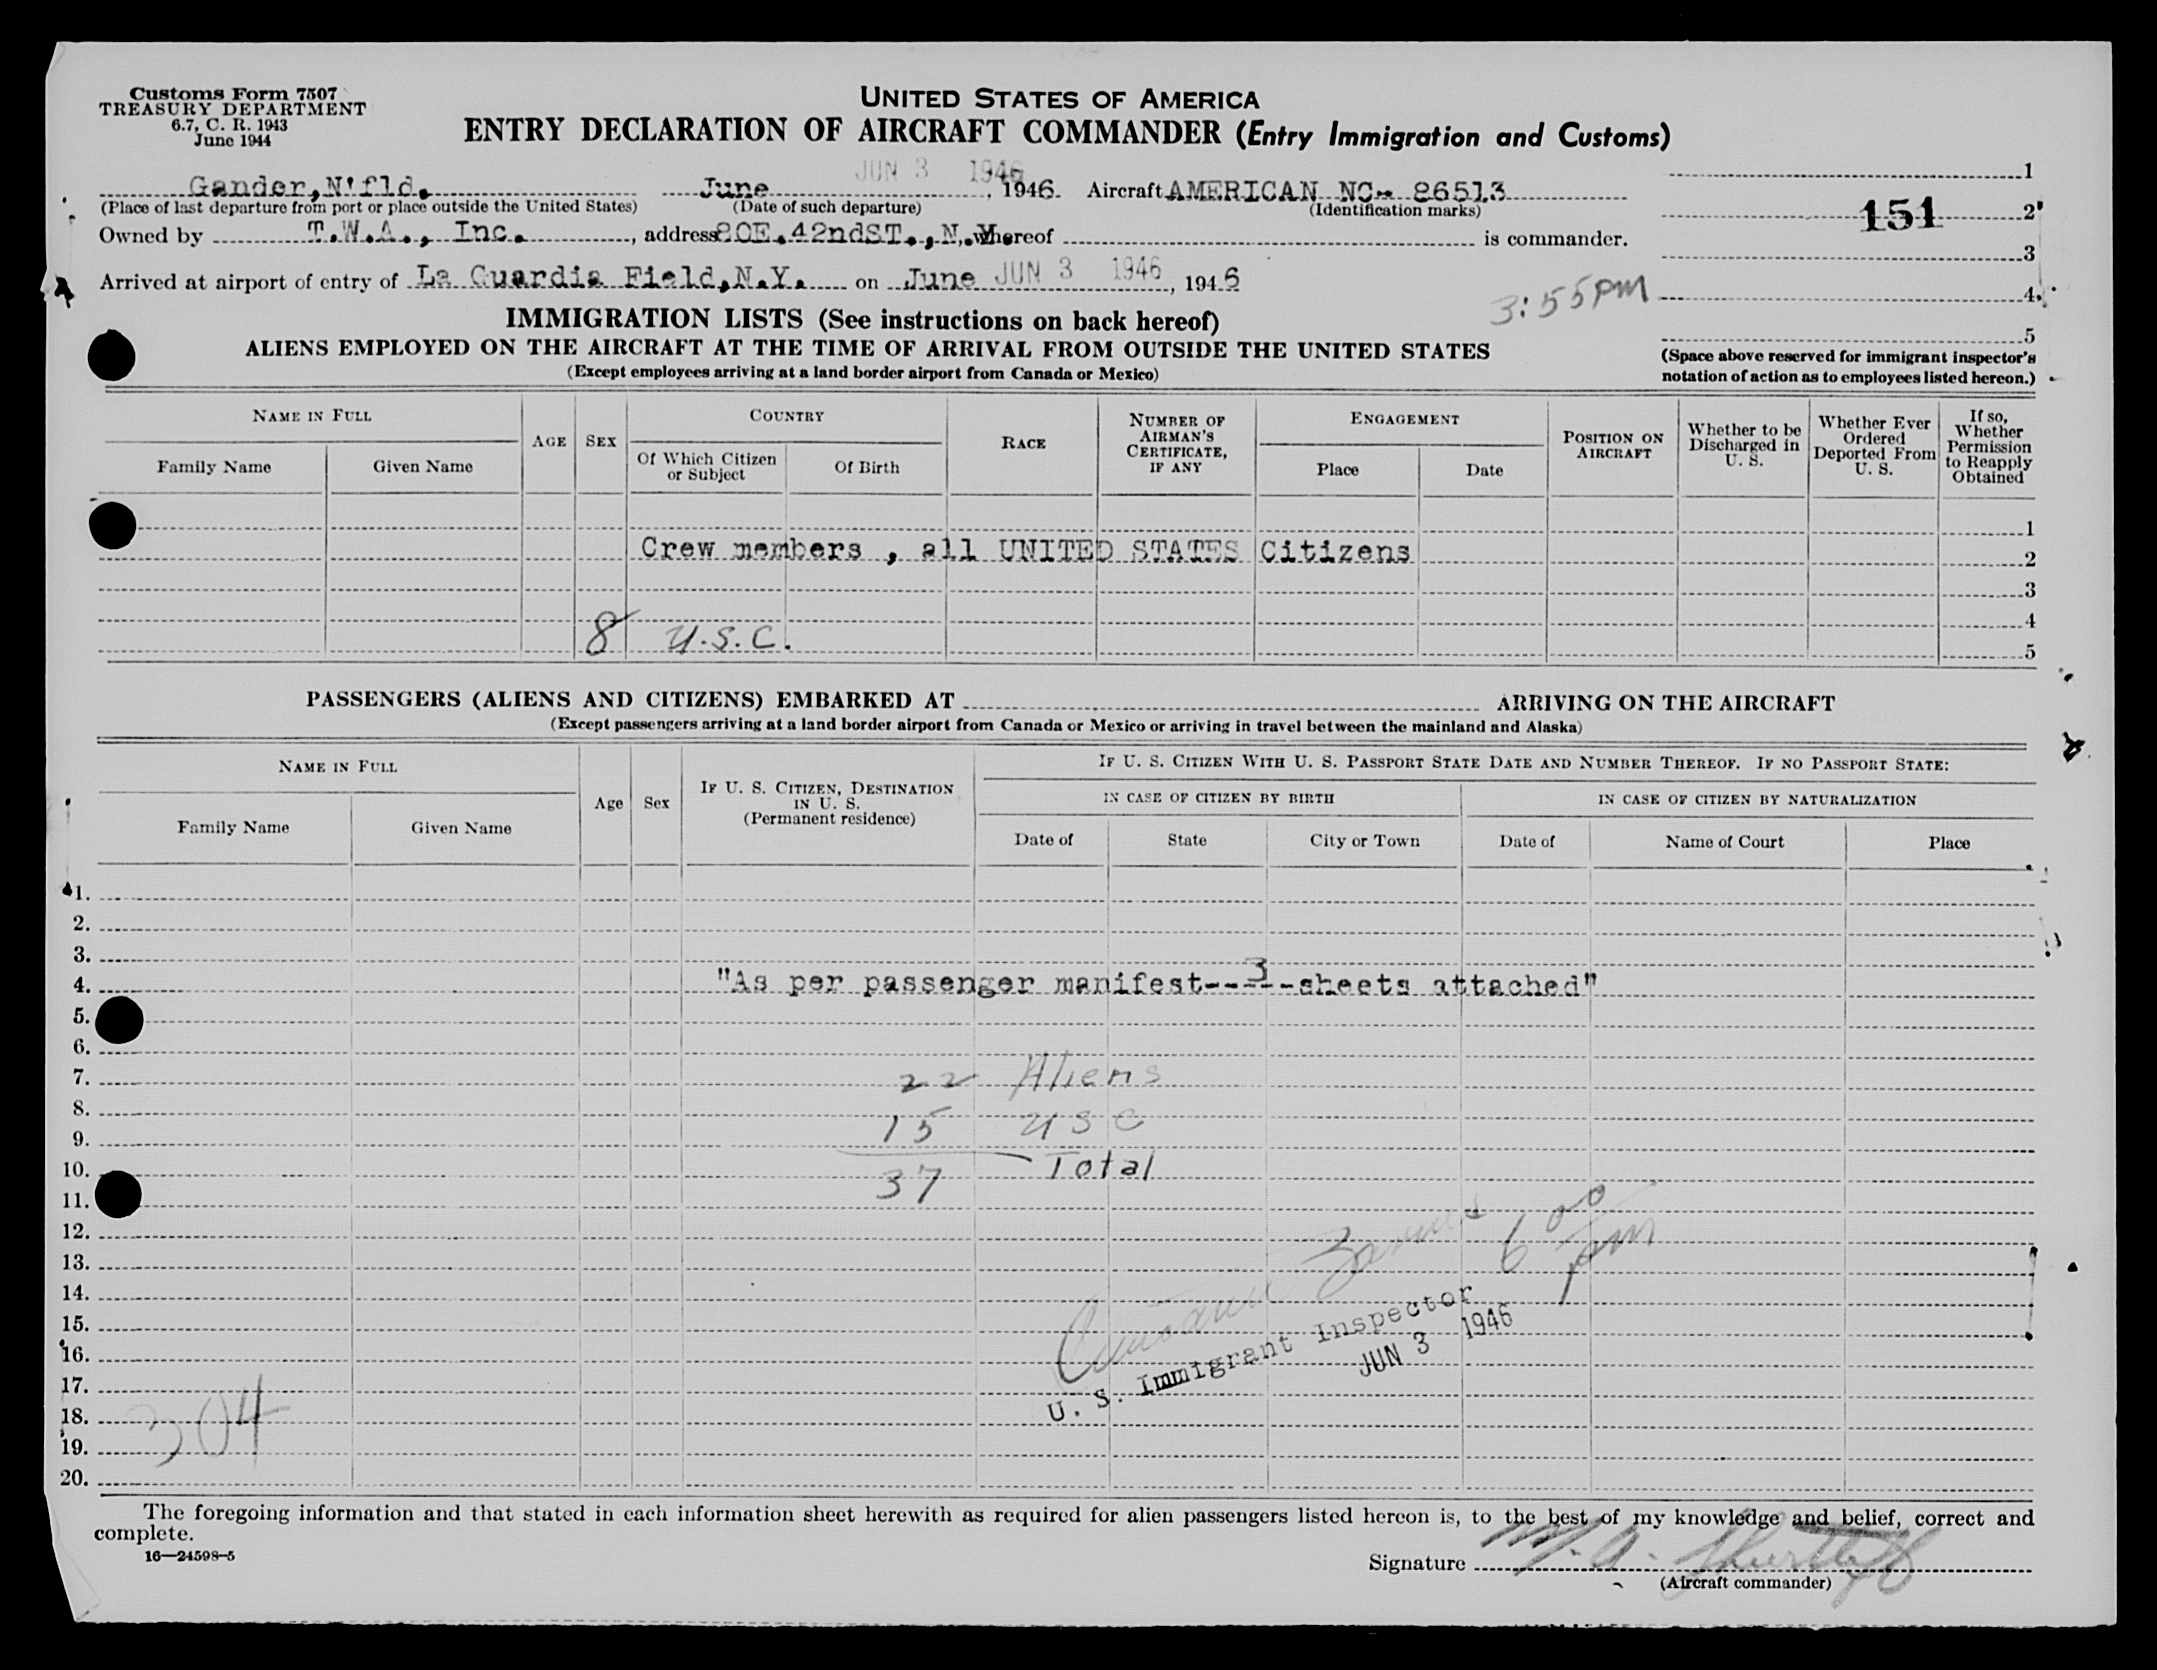 Customs Form 7507
TREASURY DEPARTMENT
6.7, C. R. 1943
June 1944
UNITED STATES OF AMERICA
ENTRY DECLARATION OF AIRCRAFT COMMANDER (Entry Immigration and Customs)
Gander,N'fld. June JUN 3 1946, 1946 Aircraft AMERICAN NC- 86513
(Place of last departure from port or place outside the United States) (Date of such departure) (Identification marks)
1
151 2
3
4
5
Owned by T.W.A., Inc., address 80E.42ndST.,N.Y. whereof is commander.
Arrived at airport of entry of La Guardia Field,N.Y. on June JUN 3 1946, 1946
3:55PM
IMMIGRATION LISTS (See instructions on back hereof)
ALIENS EMPLOYED ON THE AIRCRAFT AT THE TIME OF ARRIVAL FROM OUTSIDE THE UNITED STATES
(Except employees arriving at a land border airport from Canada or Mexico)
(Space above reserved for immigrant inspector's
notation of action as to employees listed hereon.)
NAME IN FULL
Family Name Given Name
AGE SEX
COUNTRY
Of Which Citizen or Subject Of Birth
RACE
NUMBER OF AIRMAN'S CERTIFICATE, IF ANY
ENGAGEMENT
Place Date
POSITION ON AIRCRAFT
Whether to be Discharged in U. S.
Whether Ever Ordered Deported From U. S.
If so, Whether Permission to Reapply Obtained
1
Crew members , all UNITED STATES Citizens 2
3
4
8 U.S.C. 5
PASSENGERS (ALIENS AND CITIZENS) EMBARKED AT ARRIVING ON THE AIRCRAFT
(Except passengers arriving at a land border airport from Canada or Mexico or arriving in travel between the mainland and Alaska)
NAME IN FULL
Family Name Given Name
Age Sex
IF U. S. CITIZEN, DESTINATION IN U. S. (Permanent residence)
IF U. S. CITIZEN WITH U. S. PASSPORT STATE DATE AND NUMBER THEREOF. IF NO PASSPORT STATE:
IN CASE OF CITIZEN BY BIRTH IN CASE OF CITIZEN BY NATURALIZATION
Date of State City or Town Date of Name of Court Place
1.
2.
3.
4. "As per passenger manifest--3--sheets attached"
5.
6.
7. 22 Aliens
8.
9. 15 USC
10. Total
11. 37
12.
13. 6 00 pm
14.
15.
16.
17.
18.
19.
20.
U. S. Immigrant Inspector
JUN 3 1946
304
The foregoing information and that stated in each information sheet herewith as required for alien passengers listed hereon is, to the best of my knowledge and belief, correct and
complete.
16—24598-5
Signature
(Aircraft commander)